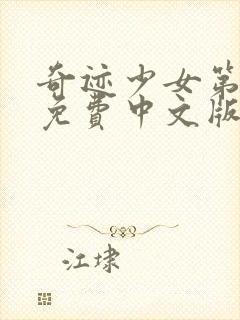 奇迹少女第
免費中文版
江埭